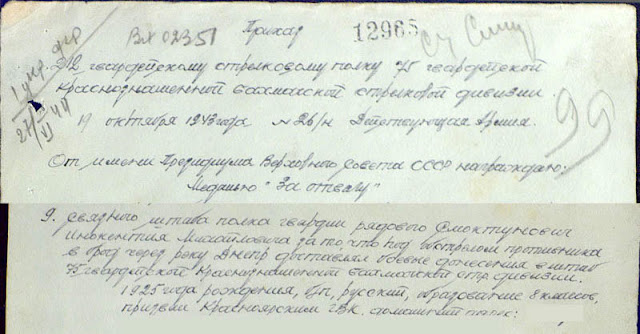 Вх 02351
Приказ
12965
212 гвардейскому стрелковому полку 75 гвардейской
Краснознаменной Бахмачской стрелковой дивизии.
19 октября 1943 года №26/н Действующая Армия.
99
От имени Президиума Верховного Совета СССР награждаю:
Медалью "За отвагу"
9. Связного штаба полка гвардии рядового Смоктунович
Инокентия Михайловича за то, что под обстрелом противника
в брод через реку Днепр доставлял боевые донесения в штаб
75 гвардейской Краснознаменной Бахмачской стр. дивизии.
1925 года рождения, б/п, русский, образование 8 классов,
призван Красноярским ГВК.